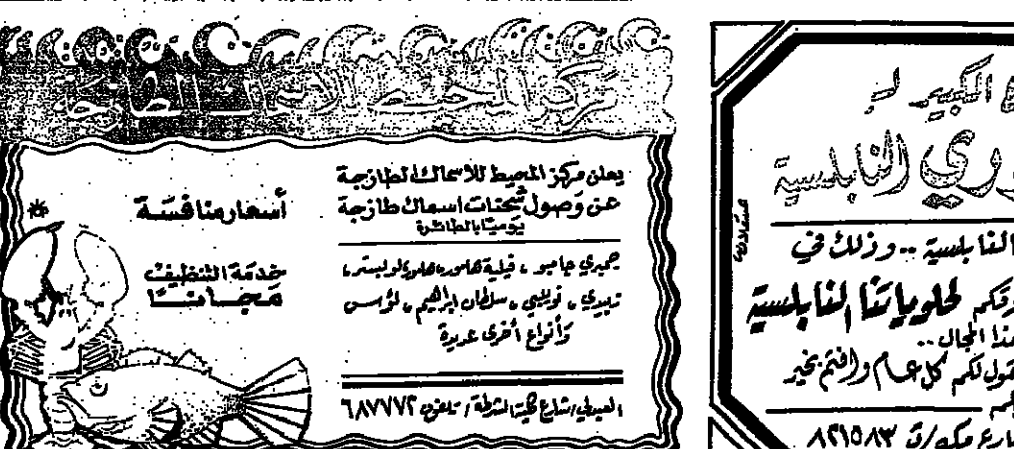 مركز المحيط للاسماك الطازجة
يعلن مركز المحيط للاسماك الطازجة
عن وصول شحنات اسماك طازجة
يوميًا بالطائرة
جمبري جامبو ، فيلية هامور، هامور، لوبستر،
زبيدي ، نويبي ، سلطان ابراهيم ،
وأنواع أخرى عديدة
شارع / تلفون ٦٨٧٧٧٢
أسعار منافسة
خدمة التنظيف
مجانا
الكبير لـ
النابلسية
النابلسية .. وذلك في
لحلوياتنا النابلسية
هذا المجال ..
لكم كل عام وانتم بخير
شارع مكه / ت ٨٢١٥٨٣